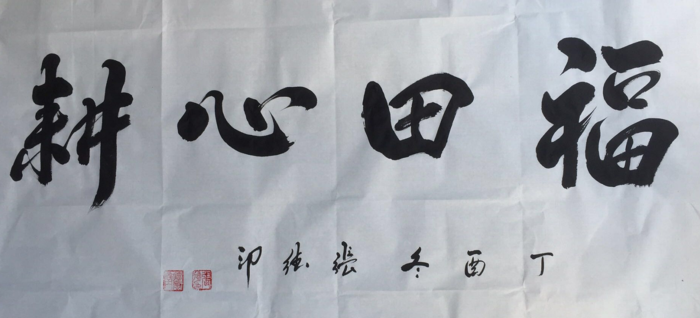 福田心耕
丁酉冬張德印